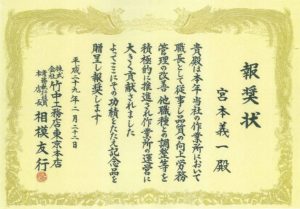 報奨状
宮本義一殿
貴殿は本年当社の作業所において
職長として従事し品質の向上労務
管理の改善他職種との調整等を
積極的に推進され作業所の運営に
大きく貢献されました
よってここにその功績をたたえ記念品を
贈呈し報奨します
平成二十九年二月二十二日
株式会社竹中工務店東京本店
専務執行役員本店長相模友行